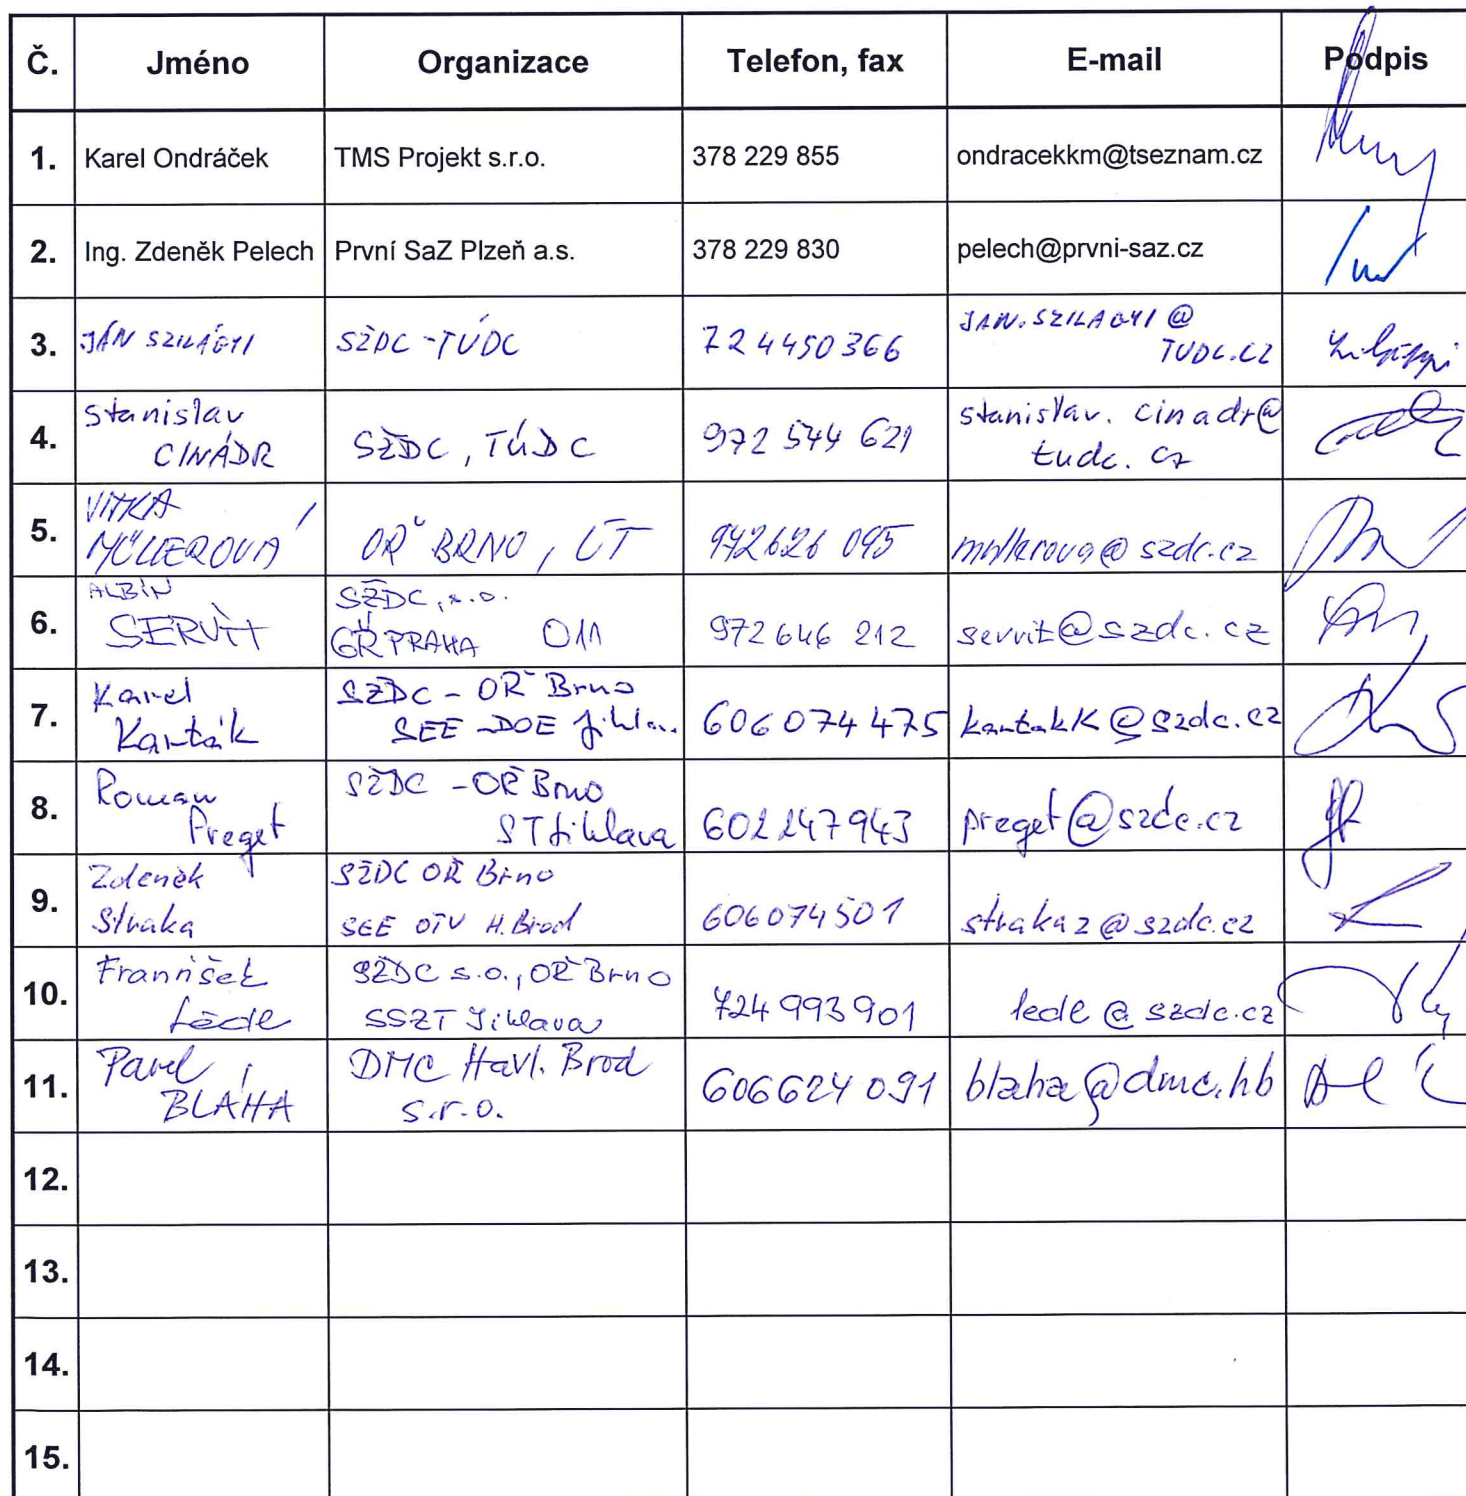 Č. Jméno Organizace Telefon, fax E-mail Podpis
1. Karel Ondráček TMS Projekt s.r.o. 378 229 855 ondracekkm@tseznam.cz
2. Ing. Zdeněk Pelech První SaZ Plzeň a.s. 378 229 830 pelech@prvni-saz.cz
3. JÁN SZILÁGYI SŽDC -TÚDC 724450366 JAN.SZILAGYI@
TUDC.CZ
4. Stanislav
CINÁDR SŽDC, TÚDC 972 544 621 stanislav.cinadr@
tudc.cz
5. VITKA
MÜLLEROVÁ OŘ BRNO, ÚT 972626 095 mullerova@szdc.cz
6. ALBÍN
SERVÍT SŽDC, s.o.
GŘ PRAHA O11 972 646 212 servit@szdc.cz
7. Karel
Karták SŽDC - OŘ Brno
SEE - DOE 606 074 475 kartakK@szdc.cz
8. Roman
Preget SŽDC - OŘ Brno
ST Jihlava 602 247943 preget@szdc.cz
9. Zdeněk
Straka SŽDC OŘ Brno
SEE OTV H. Brod 606074501 strakaz@szdc.cz
10. František
Lédl SŽDC s.o., OŘ Brno
SSZT Jihlava 724 993 901 @szdc.cz
11. Pavel
BLÁHA DMC Havl. Brod
s.r.o. 606624 091 blaha@dmc.hb
12.
13.
14.
15.